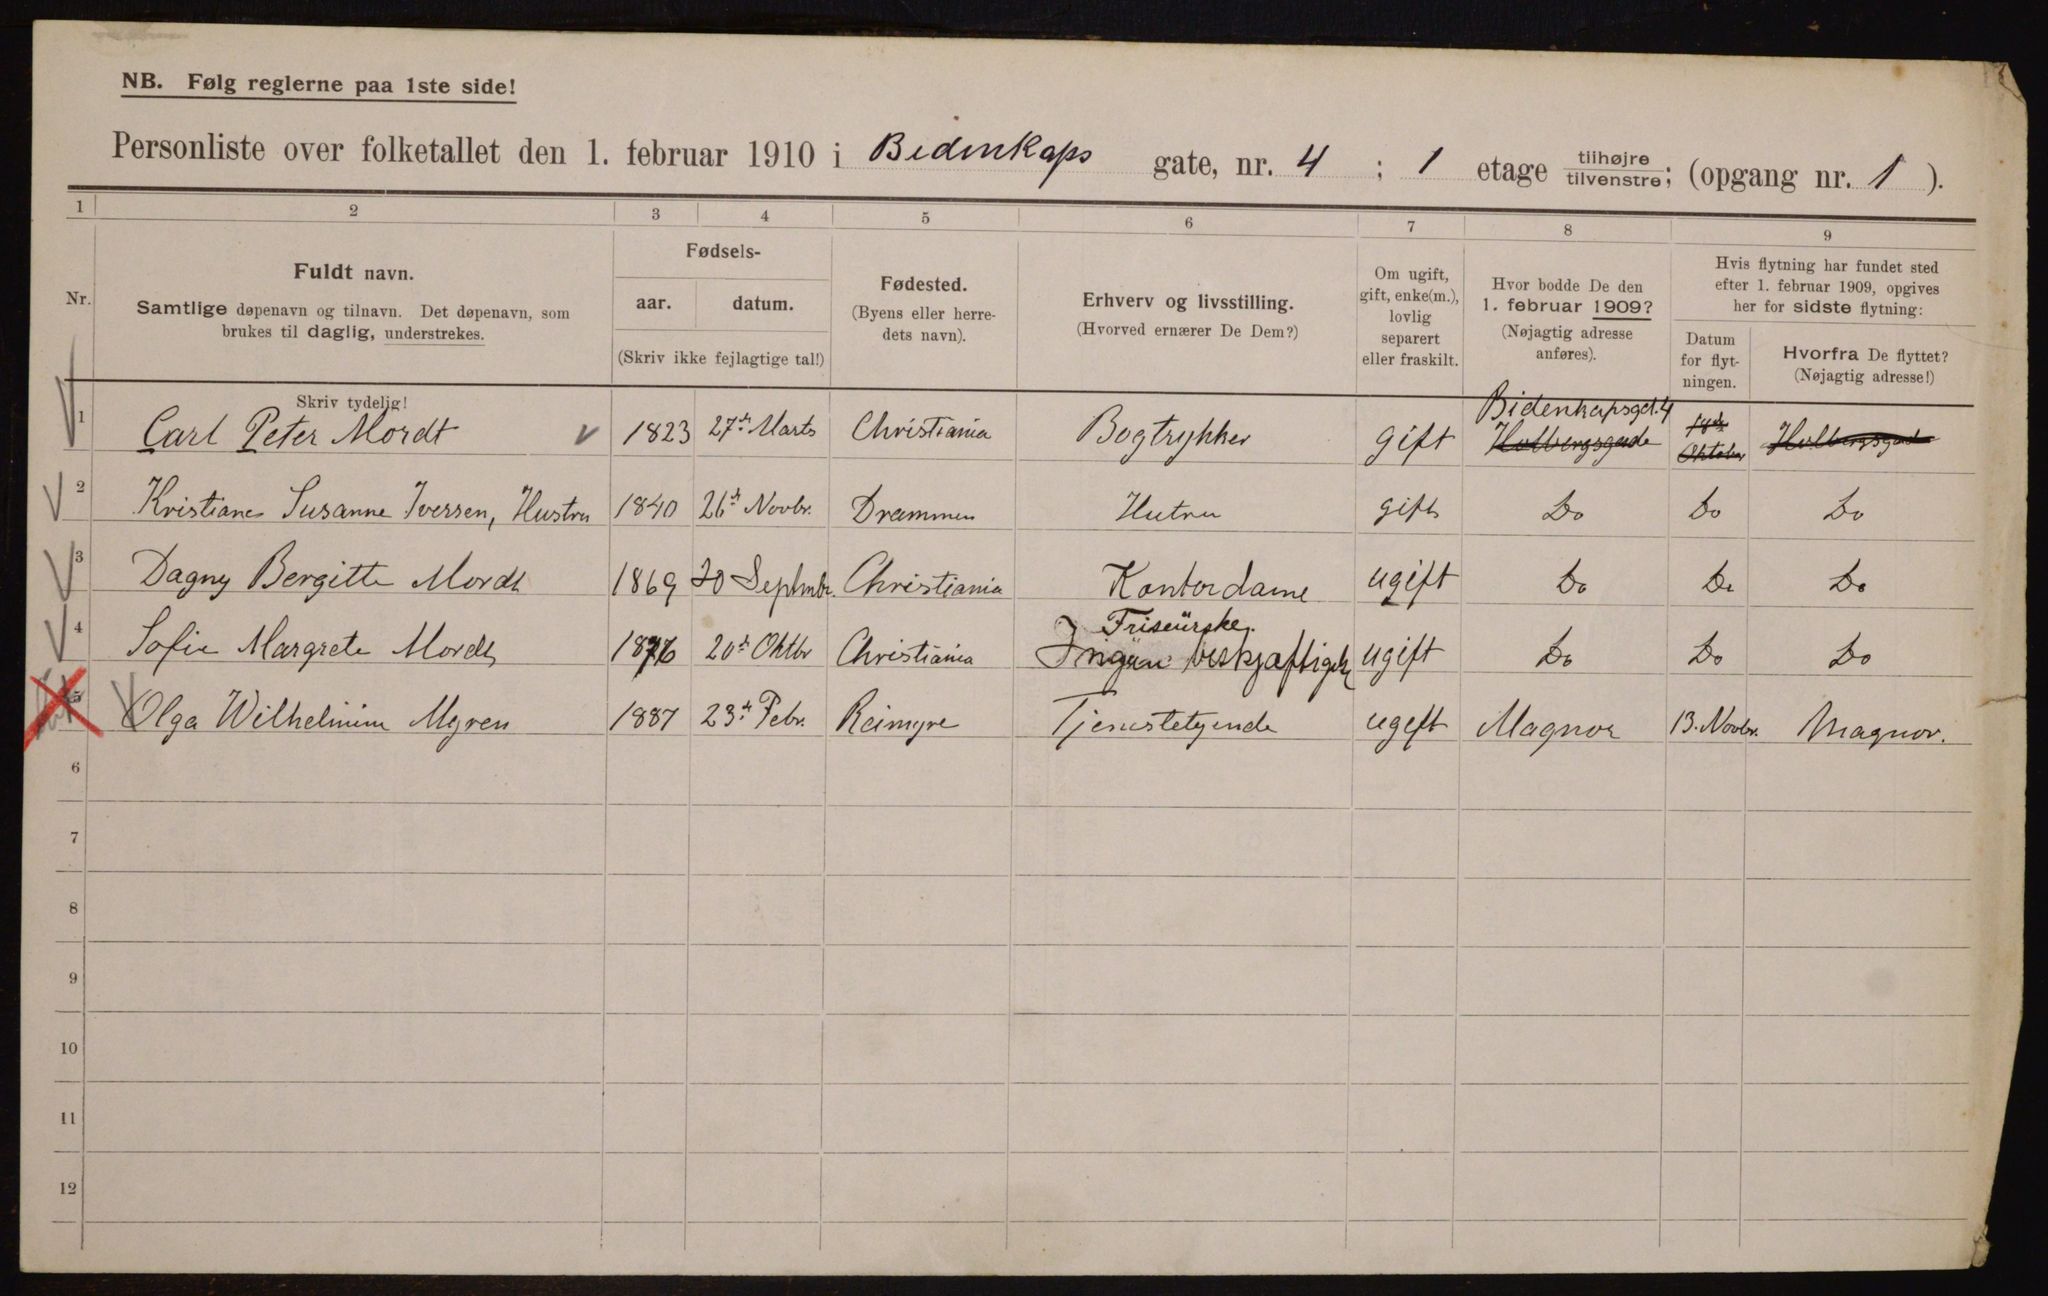 NB. Følg reglerne paa 1ste side!
Personliste over folketallet den 1. februar 1910 i Bidenkaps gate, nr. 4 ; 1 etage tilhøjre/tilvenstre; (opgang nr. 1 ).
1 2 3 4 5 6 7 8 9
Nr.
Fuldt navn.
Samtlige døpenavn og tilnavn. Det døpenavn, som
brukes til daglig, understrekes.
Skriv tydelig!
Fødsels-
aar. datum.
(Skriv ikke fejlagtige tal!)
Fødested.
(Byens eller herre-
dets navn).
Erhverv og livsstilling.
(Hvorved ernærer De Dem?)
Om ugift,
gift, enke(m.),
lovlig
separert
eller fraskilt.
Hvor bodde De den
1. februar 1909?
(Nøjagtig adresse
anføres).
Hvis flytning har fundet sted
efter 1. februar 1909, opgives
her for sidste flytning:
Datum
for flyt-
ningen.
Hvorfra De flyttet?
(Nøjagtig adresse!)
Bidenkapsgt. 4
1 Carl Peter Mordt 1823 27de Marts Christiania Bogtrykker gift Holbergsgade 18de Oktober Holbergsgade
2 Kristiane Susanne Iversen, Hustru 1840 26de Novbr. Drammen Hutru gift Do Do Do
3 Dagny Bergitte Mordt 1869 20 Septmbr. Christiania Kontordame ugift Do Do Do
Friseürske.
4 Sofie Margrete Mordt 1876 20de Oktbr Christiania Ingen beskjæftigelse ugift Do Do Do
5 Olga Wilhelmine Myren 1887 23de Febr. Reimyre Tjenestetyende ugift Magnor 13. Novbr. Magnor.
6
7
8
9
10
11
12